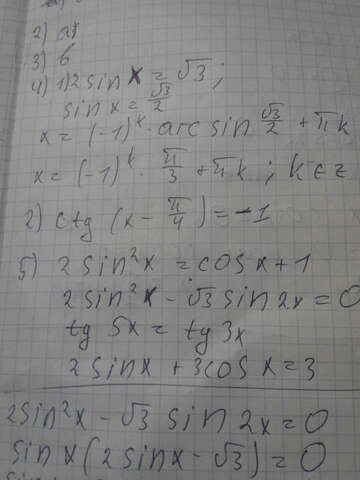 2) а
3) в
4) 1) 2 sin x = √3 ;
sin x = √3/2
x = (-1)^k · arc sin √3/2 + πk
x = (-1)^k · π/3 + πk ; k ∈ z
2) ctg (x - π/4) = -1
5) 2 sin²x = cos x + 1
2 sin²x - √3 sin 2x = 0
tg 5x = tg 3x
2 sin x + 3 cos x = 3
2 sin²x - √3 sin 2x = 0
sin x (2 sin x - √3) = 0